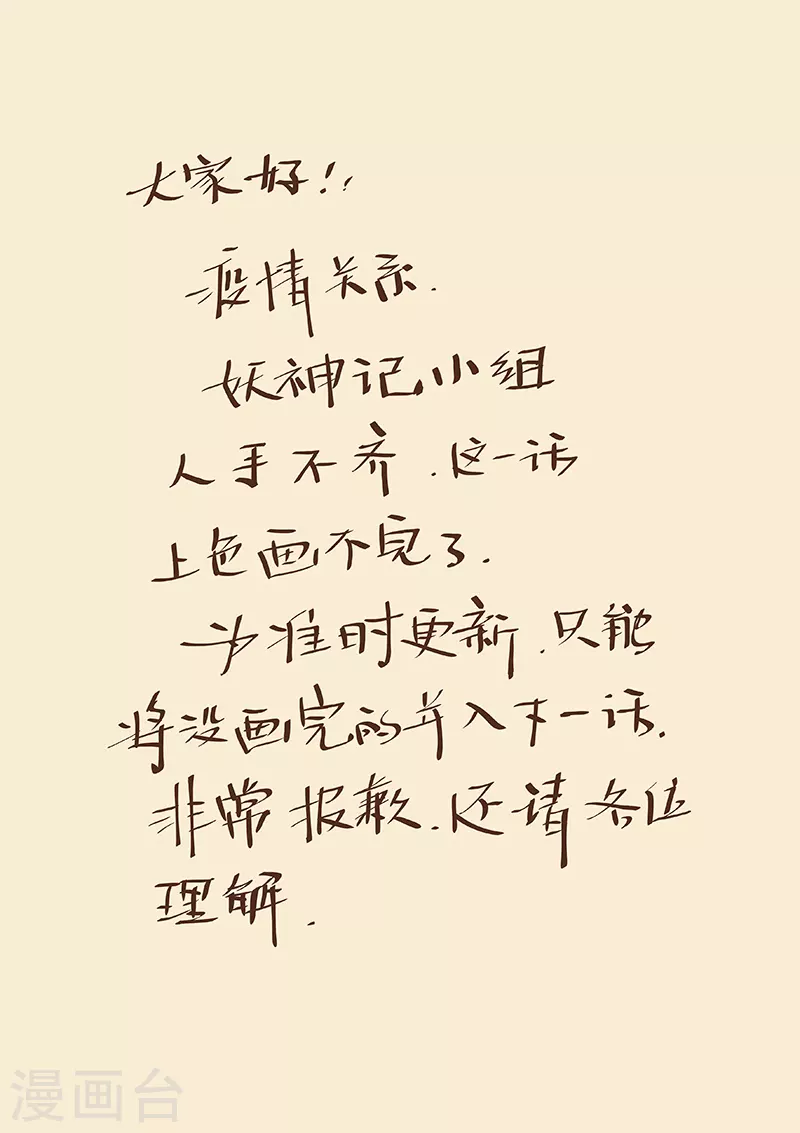 大家好!!
疫情关系.
妖神记小组
人手不齐.这一话
上色画不完了.
为准时更新.只能
将没画完的并入下一话.
非常报歉.还请各位
理解.
漫画台